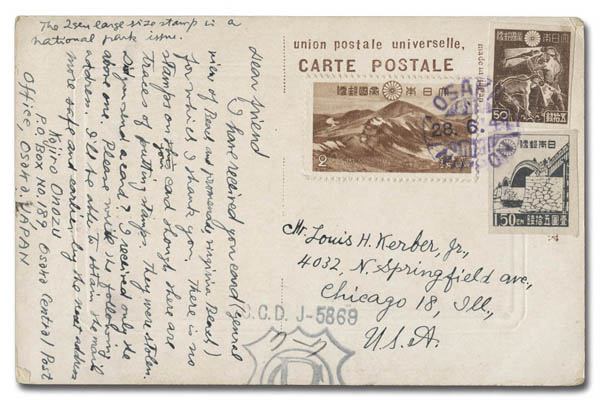 The 2 sen large size stamp is a
national park issue.
Dear friend
I have received your card (general
view of Beach and promenade Virginia Beach)
for which I thank you, There is no
stamps on the card though there are
traces of putting stamps. They were stolen.
send a card? I received only the
above one. Please write the following
address. I'll be able to obtain the mail
more safe and earlier by the next address
Kojiro Onozu
P.O. Box No. 189, Osaka Central Post
Office, Osaka, JAPAN
union postale universelle,
CARTE POSTALE
made in
大日本帝国郵便
2
OSAKA
28. 6.
NIPPON
大日本帝国郵便
50
銭拾五
日本郵便
1.50 EN
銭拾五圓壹
Mr. Louis H. Kerber, Jr.,
4032, N. Springfield ave,
Chicago 18, Ill.,
U.S.A.
C.C.D. J-5869